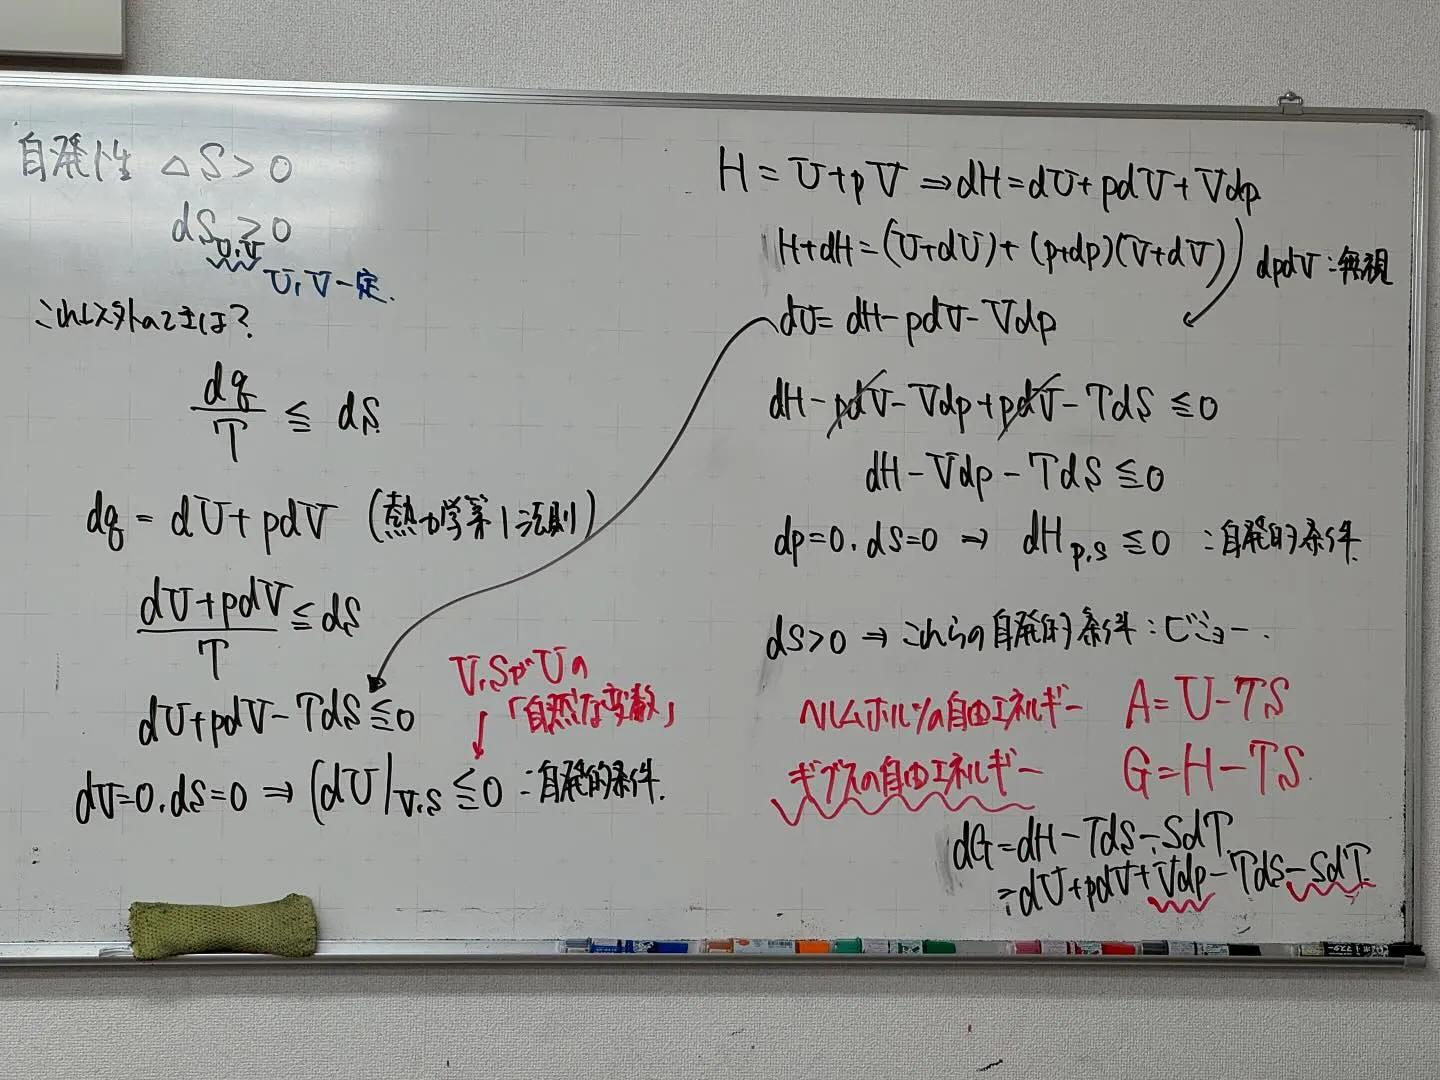 自発性 △S>0
dS_{U,V}≧0
U,V一定.
これ以外のときは?
dq/T ≦ dS
dq = dU+pdV (熱力学第1法則)
(dU+pdV)/T ≦ dS
dU+pdV-TdS≦0
V,SがUの
「自然な変数」
↓
dV=0,dS=0 ⇒ (dU)_{V,S}≦0 :自発的条件.
H=U+pV ⇒ dH=dU+pdV+Vdp
H+dH=(U+dU)+(p+dp)(V+dV)
dpdV:無視
dU=dH-pdV-Vdp
dH-pdV-Vdp+pdV-TdS≦0
dH-Vdp-TdS≦0
dp=0,dS=0 ⇒ dH_{p,S}≦0 :自発的条件
dS>0 ⇒ これらの自発的条件:ビミョー.
ヘルムホルツの自由エネルギー A=U-TS
ギブズの自由エネルギー G=H-TS
dG=dH-TdS-SdT
=dU+pdV+Vdp-TdS-SdT